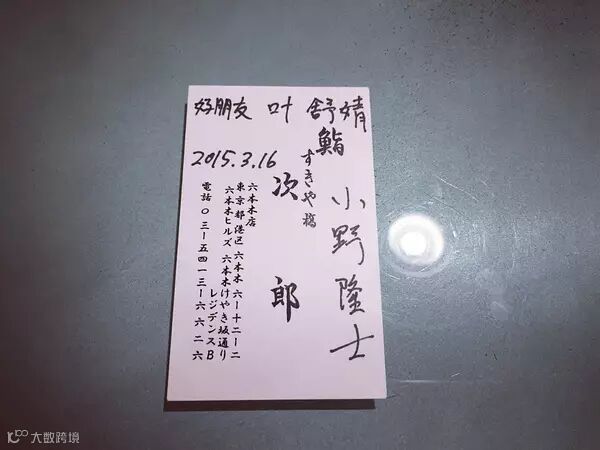 好朋友 叶 舒婧
2015.3.16
小野隆士
鮨
すきや橋
次郎
六本木店
東京都港区 六本木 六ー十二ー二
六本木ヒルズ 六本木けやき坂通り
レジデンスB
電話 〇三ー五四一三ー六六二六
大数跨境